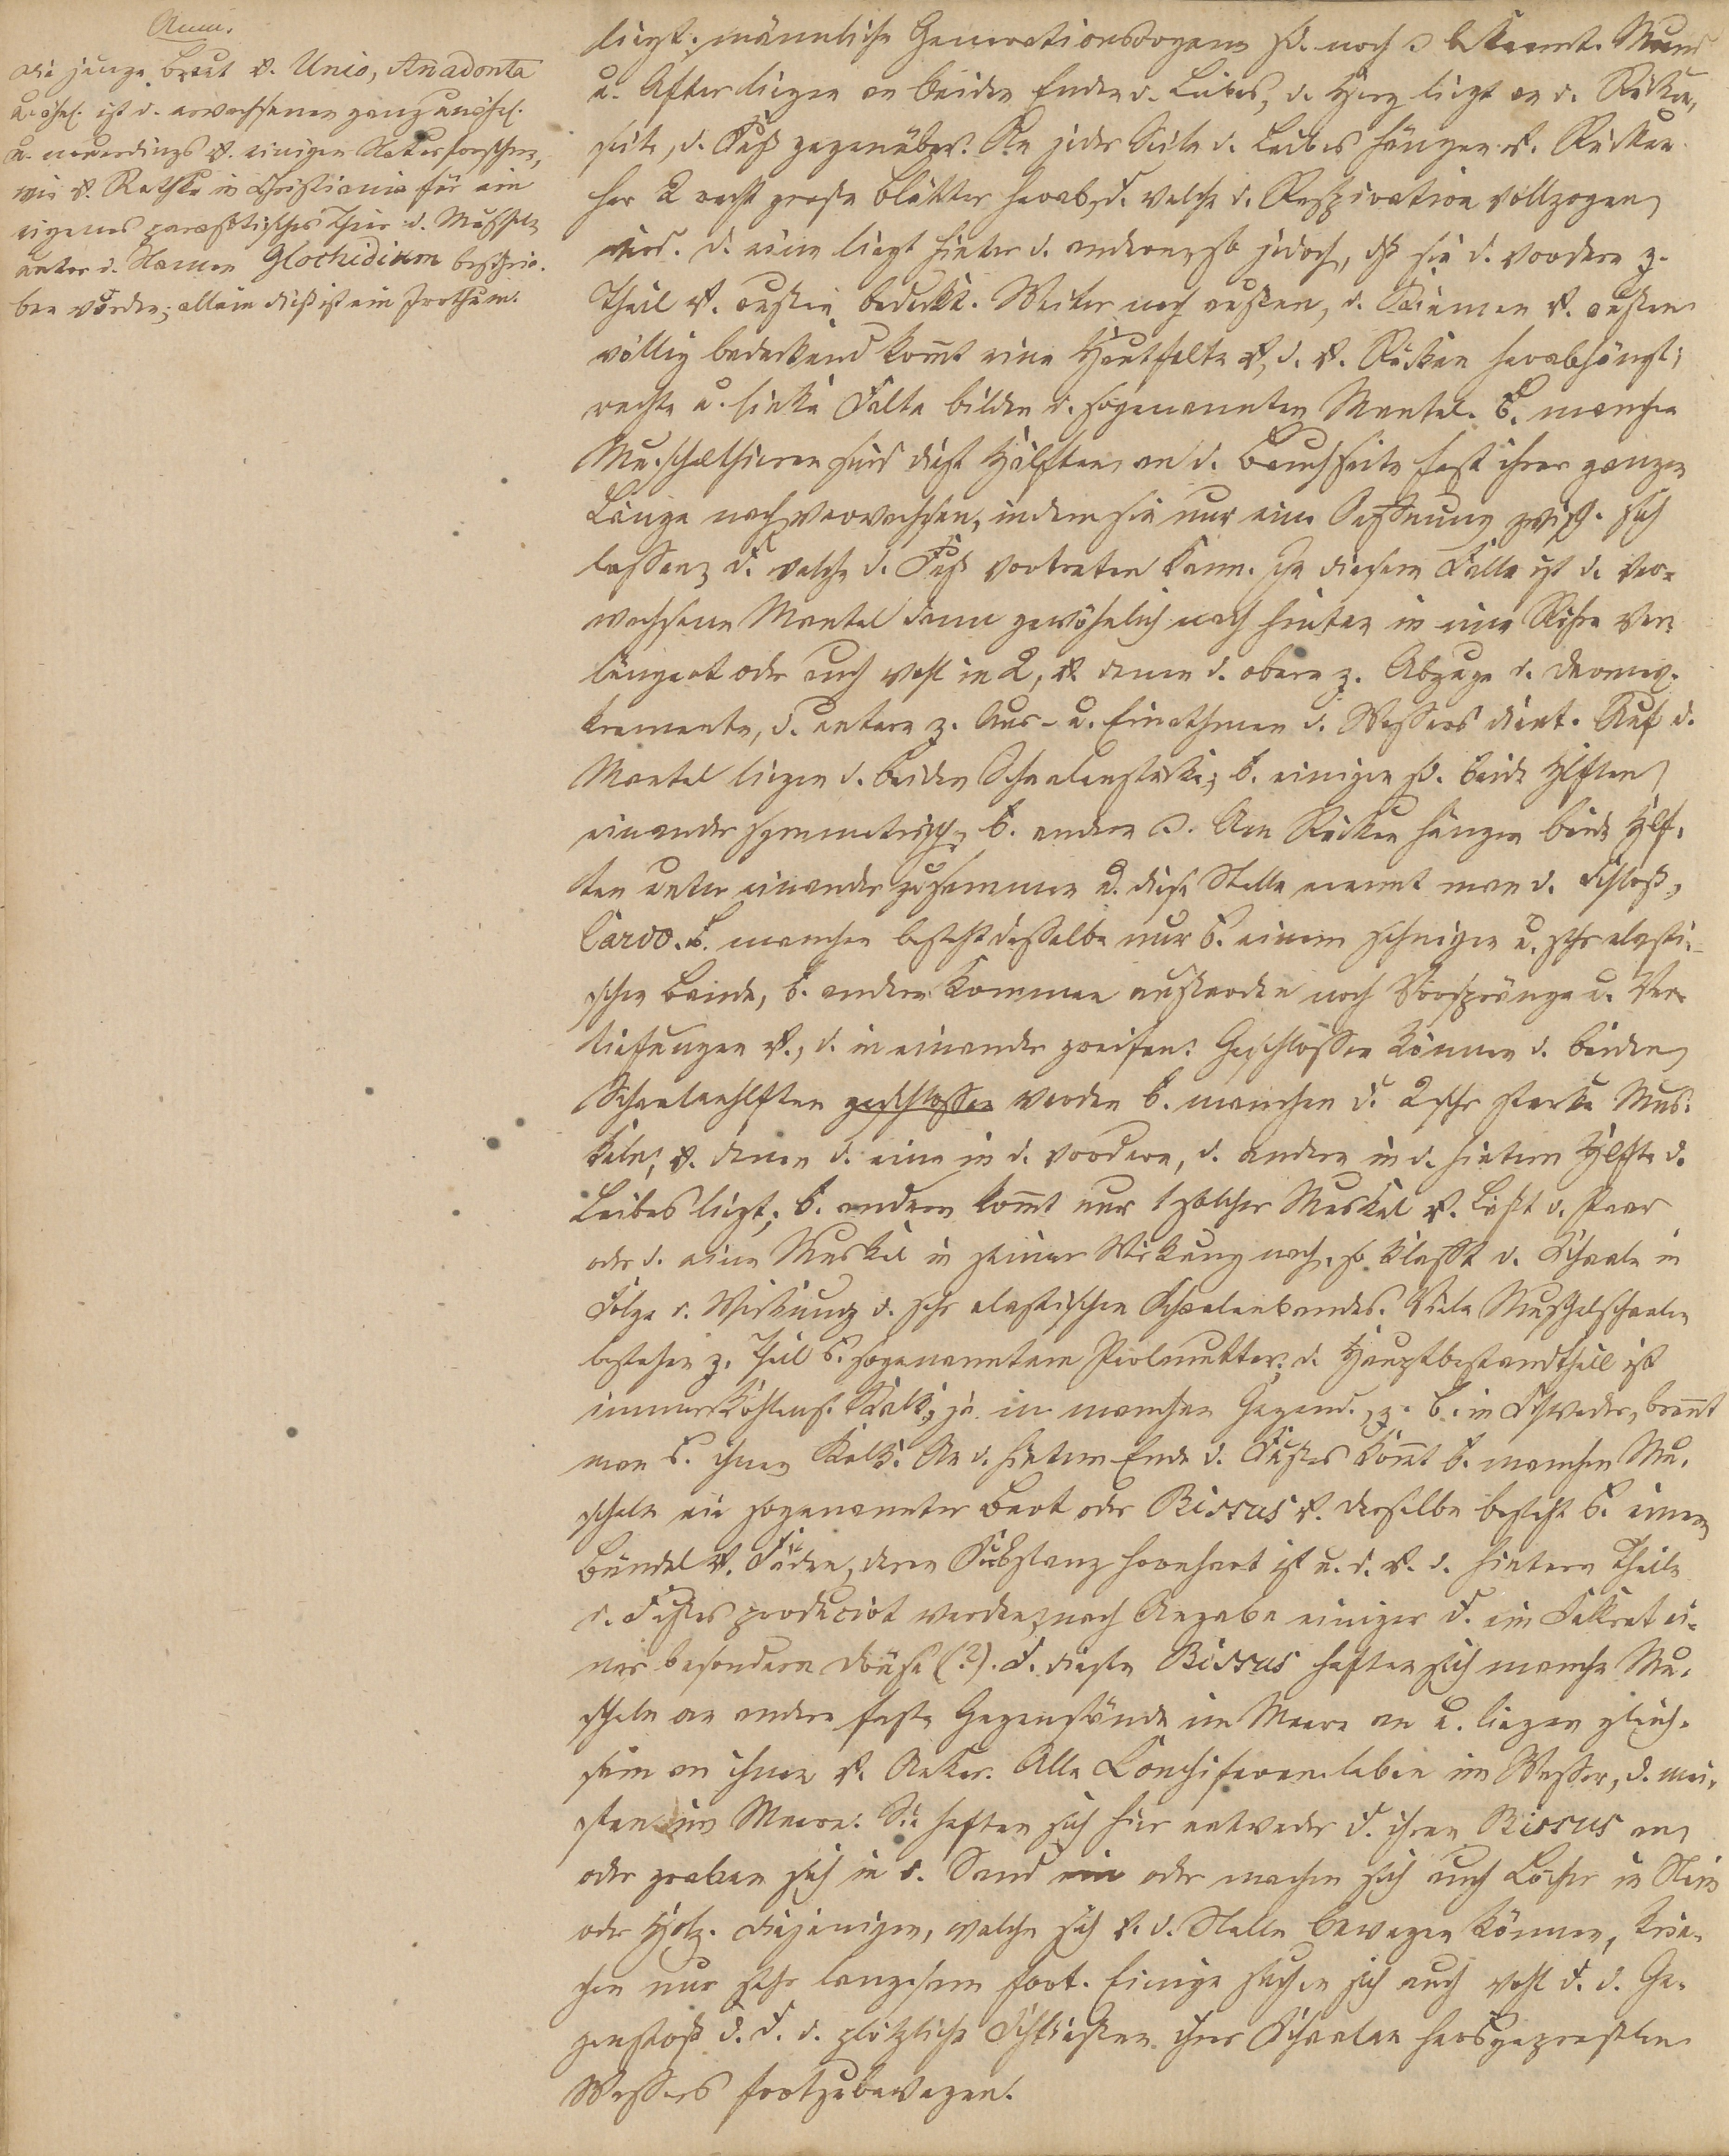 Anm.
Die junge Brut v. Unio, Anadonta
u. ähnl. ist d. erwachsenen ganz unähnl.
u. neuerdings v. einigen Naturforschern,
wie v. Rathke in Christiania für ein
eigenes parasitisches Thier d. Muscheln
unter d. Namen Glochidium beschrie-
ben worden; allein dieß ist ein Irrthum.
liegt; männliche Generationsorgane sd. noch bekannt. Mund
u. After liegen an beiden Enden d. Leibes, d. Herz liegt an d. Rücken-
seite, d. Fuß gegenüber. An jeder Seite d. Leibes hängen v. Rücken
her 2 recht große Blätter herab, d. welche d. Respiration vollzogen
wird. D. eine liegt hinter d. anderen, so jedoch, dß sie d. vordere z.
Theil v. außen bedeckt. Weiter nach außen, d. Kiemen v. außen
völlig bedeckend kom̄t eine Hautfalte v., d. v. Rücken herabhängt;
rechte u. linke Falte bilden d. sogenannten Mantel. B. manchen
Muschelthieren sind diese Hälften an d. Bauchseite fast ihrer ganzen
Länge nach verwachsen, indem sie nur eine Oeffnung zwisch. sich
lassen, d. welche d. Fuß vortreten kann. In diesem Falle ist d. ver-
wachsene Mantel dann gewöhnlich nach hinten in eine Röhre ver-
längert oder auch wohl in 2, v. denen d. obere z. Abzuge d. Darmex-
kremente, d. untere z. Aus- u. Einathmen d. Wassers dient. Auf d.
Mantel liegen d. beiden Schaalenstücke; b. einigen sd. beide Hlften
einander symmetrisch, b. andern. Am Rücken hängen beide Hlf-
ten unter einander zusammen u. diese Stelle nennt man d. Schloß,
Cardo. B. manchen besteht dasselbe nur b. einem sehnigen u. sehr elasti-
schen Bande, b. andern kommen außerdem noch Vorsprünge u. Ver-
tiefungen v., d. in einander greifen. Geschlossen können d. beiden
Schaalenhlften geschlossen werden b. manchen d. 2 sehr starke Mus-
keln, v. denen d. eine in d. vordern, d. andere in d. hintern Hlfte d.
Leibes liegt; b. andern kom̄t nur 1 solcher Muskel v. Läßt d. Paar
oder d. eine Muskel in seiner Wirkung nach, so klafft d. Schaale in
Folge d. Wirkung d. sehr elastischen Schaalenbandes. Viele Muschelschaalen
bestehen z. Theil b. sogenanntem Perlmutter; d. Hauptbestandtheil ist
immer kohlens. Kalk; ja in manchen Gegend., z. B. in Schweden, brennt
man b. ihnen Kalk. An d. hintern Ende d. Fußes kom̄t b. manchen Mu-
scheln ein sogenannter Bart oder Bissus v. Derselbe besteht b. einem
Bündel v. Fäden, deren Substanz hornhart ist u. d. v. d. hintern Theile
d. Fußes producirt werden, nach Angabe einiger d. ein Sekret ei-
ner besondern Drüse (?). D. diesen Bissus heften sich manche Mu-
scheln an andere feste Gegenstände im Meere an u. liegen gleich-
sam an ihnen v. Anker. Alle Conchiferen leben im Wasser, d. mei-
sten im Meere. Sie heften sich hier entweder d. ihren Bissus an,
oder graben sich in d. Sand ein oder machen sich auch Löcher in Stein
oder Holz. Diejenigen, welche sich v. d. Stelle bewegen können, krie-
chen nur sehr langsam fort. Einige suchen sich auch wohl d. d. Ge-
genstoß d. d. d. plötzliche Schließen ihrer Schaalen herausgepreßten
Wassers fortzubewegen.